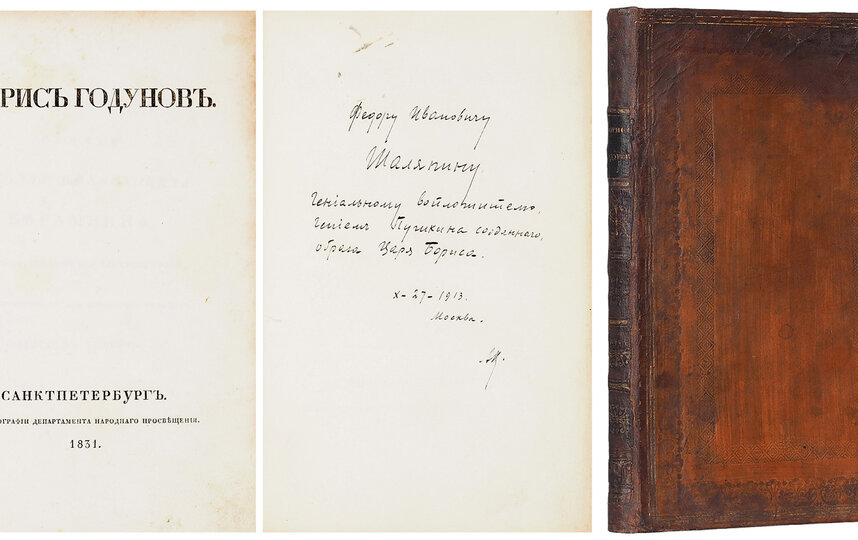 РИСЪ ГОДУНОВЪ.
САНКТПЕТЕРБУРГЪ.
ОГРАФІИ ДЕПАРТАМЕНТА НАРОДНАГО ПРОСВѢЩЕНІЯ.
1831.
Федору Ивановичу
Шаляпину.
Геніальному воплотителю,
геніемъ Пушкина созданнаго,
образа Царя Бориса.
X-27-1913.
Москва.